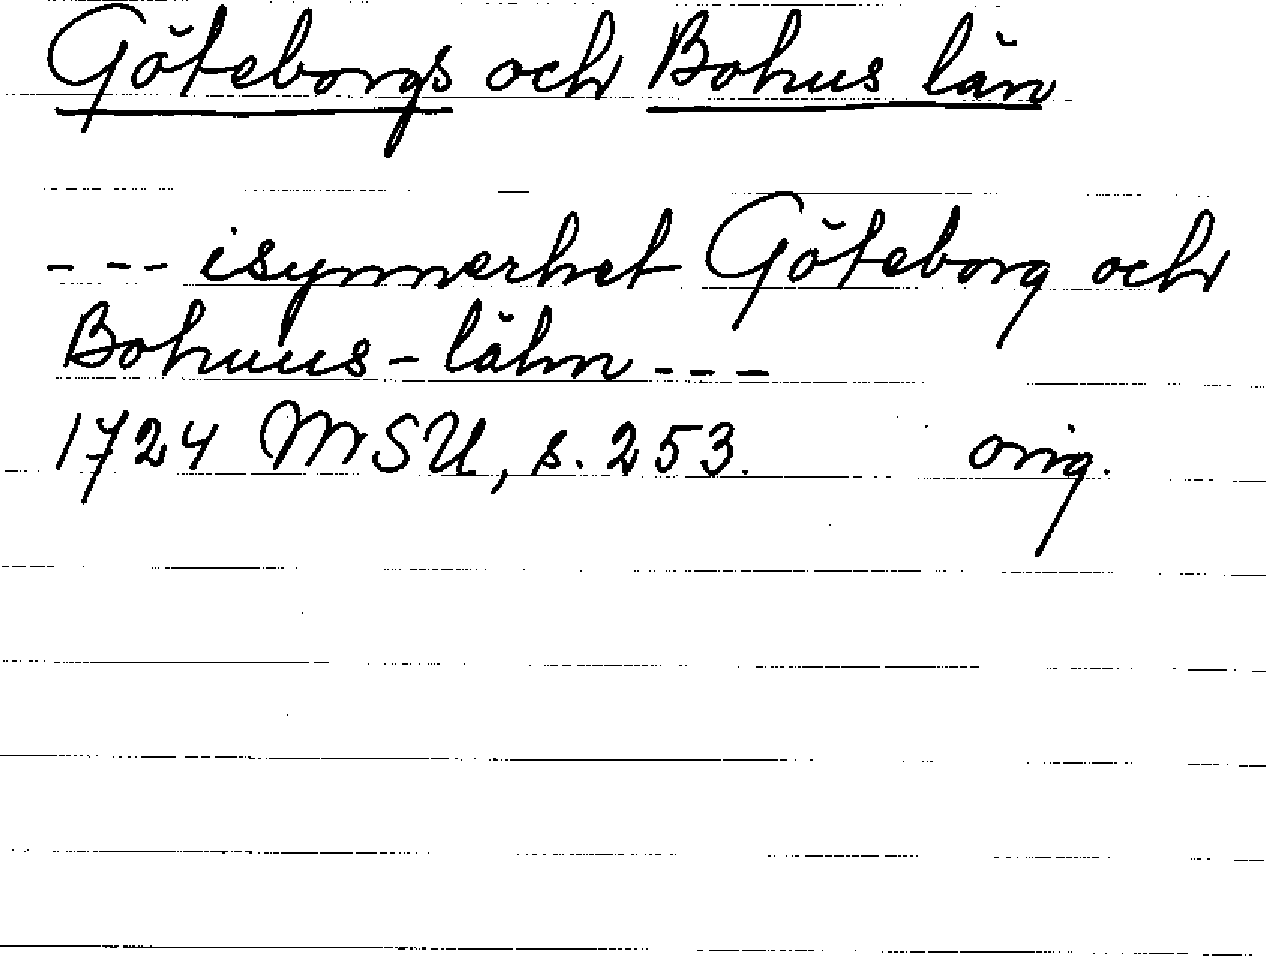 Göteborgs och Bohus län
--- isynnerhet Göteborg och
Bohuus-lähn ---
1724 MSU, s. 253. orig.